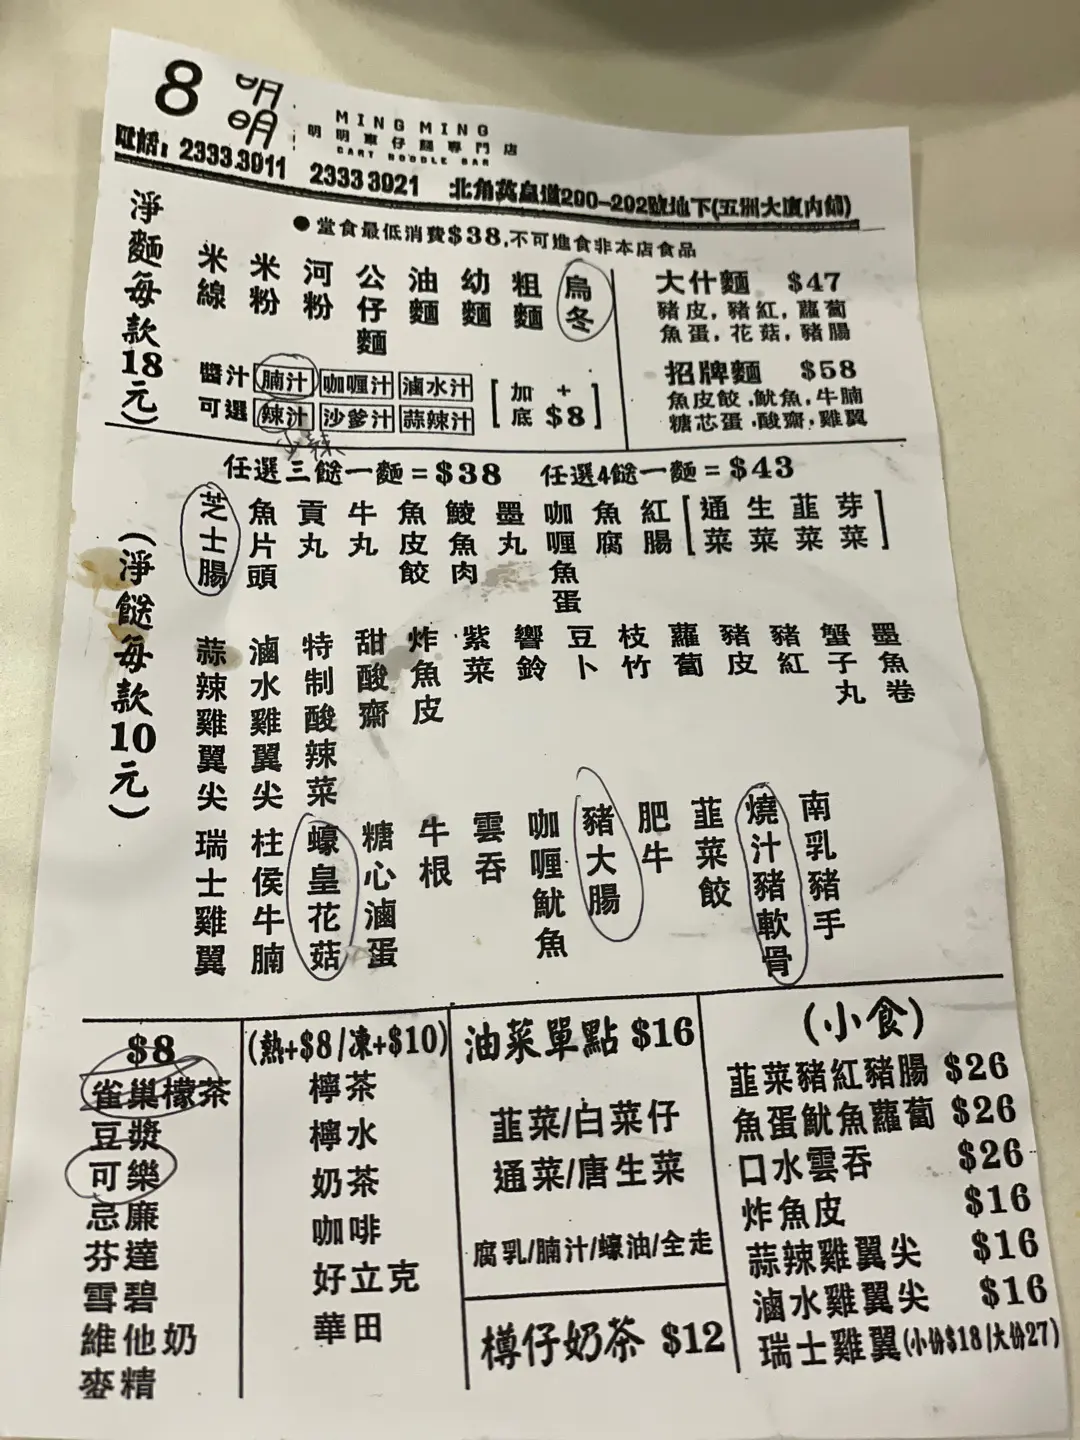 8 明明
MING MING
明明車仔麵專門店
CART NOODLE BAR
電話：2333 3011 2333 3021 北角英皇道290-292號地下(五洲大廈內舖)
●堂食最低消費$38,不可進食非本店食品
淨麵每款18元)
米線 米粉 河粉 公仔麵 油麵 幼麵 粗麵 烏冬
醬汁可選
腩汁 咖喱汁 滷水汁
辣汁 沙爹汁 蒜辣汁
[加底 +$8]
小辣
大什麵 $47
豬皮,豬紅,蘿蔔
魚蛋,花菇,豬腸
招牌麵 $58
魚皮餃,魷魚,牛腩
糖芯蛋,酸齋,雞翼
任選三餸一麵=$38 任選4餸一麵=$43
(淨餸每款10元)
芝士腸 魚片頭 貢丸 牛丸 魚皮餃 鯪魚肉 墨丸 咖喱魚蛋 魚腐 紅腸 [通菜 生菜 韮菜 芽菜]
蒜辣雞翼尖 滷水雞翼尖 特制酸辣菜 甜酸齋 炸魚皮 紫菜 響鈴 豆卜 枝竹 蘿蔔 豬皮 豬紅 蟹子丸 墨魚卷
瑞士雞翼 柱侯牛腩 蠔皇花菇 糖心滷蛋 牛根 雲吞 咖喱魷魚 豬大腸 肥牛 韮菜餃 燒汁豬軟骨 南乳豬手
$8
雀巢檬茶
豆漿
可樂
忌廉
芬達
雪碧
維他奶
麥精
(熱+$8/凍+$10)
檸茶
檸水
奶茶
咖啡
好立克
華田
油菜單點 $16
韮菜/白菜仔
通菜/唐生菜
腐乳/腩汁/蠔油/全走
樽仔奶茶 $12
(小食)
韮菜豬紅豬腸 $26
魚蛋魷魚蘿蔔 $26
口水雲吞 $26
炸魚皮 $16
蒜辣雞翼尖 $16
滷水雞翼尖 $16
瑞士雞翼(小份$18/大份27)